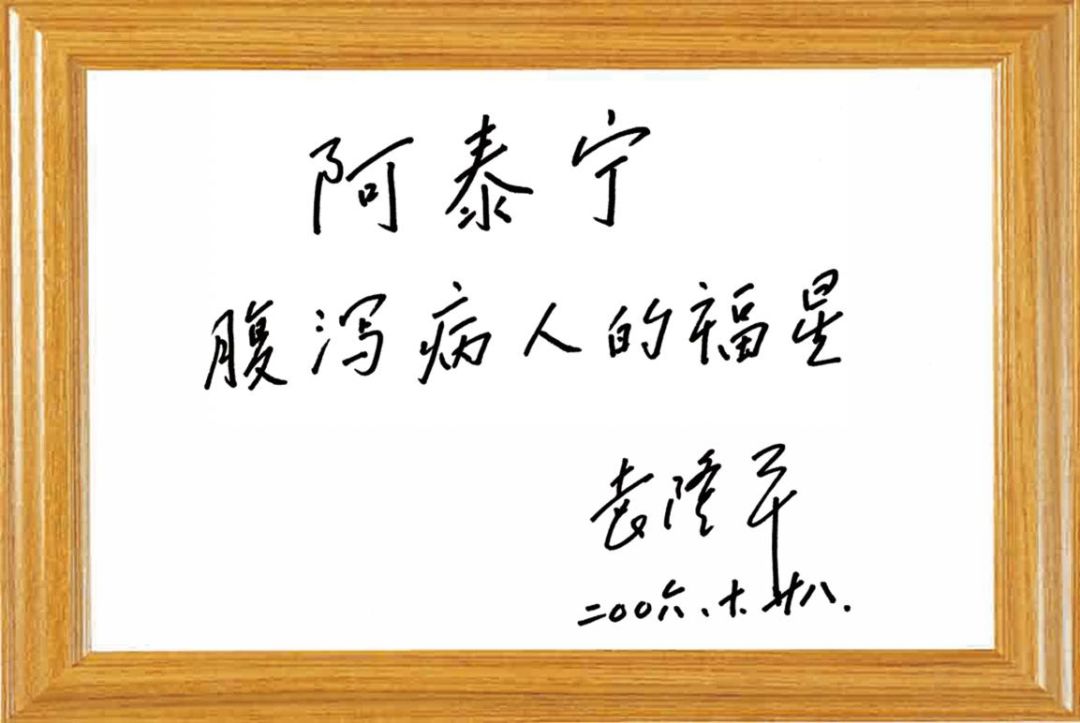 阿泰宁
腹泻病人的福星
袁隆平
二〇〇六、十、廿八.